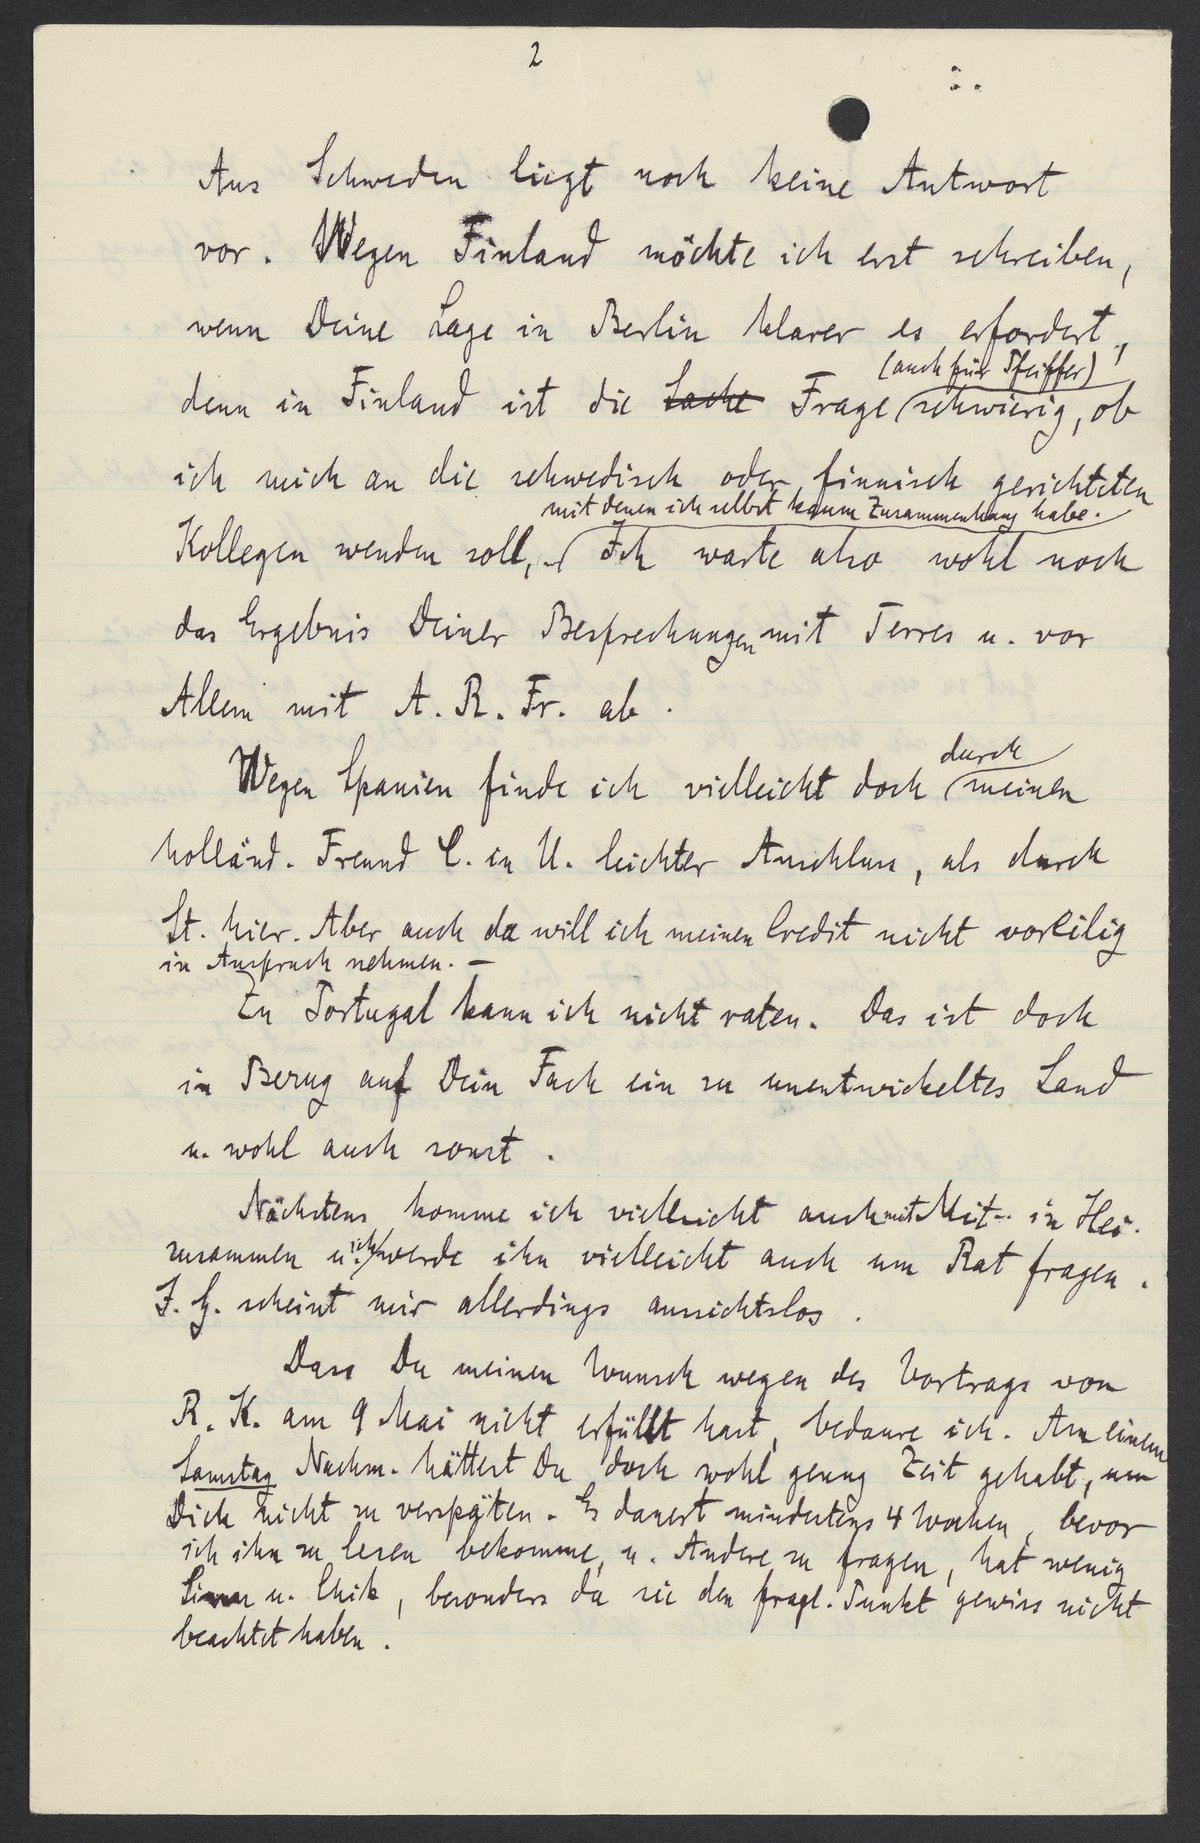 2
Aus Schweden liegt noch keine Antwort
vor. Wegen Finland möchte ich erst schreiben,
wenn Deine Lage in Berlin klarer es erfordert,
(auch für Pfeiffer)
denn in Finland ist die Sache Frage schwierig, ob
ich mich an die schwedisch oder finnisch gerichteten
mit denen ich selbst kaum Zusammenhang habe.
Kollegen wenden soll, Ich warte also wohl noch
das Ergebnis Deiner Besprechungen mit Terres u. vor
Allem mit A. R. Fr. ab.
durch
Wegen Spanien finde ich vielleicht doch meinen
holländ. Freund C. in U. leichter Anschluss, als durch
St. hier. Aber auch da will ich meinen Credit nicht voreilig
in Anspruch nehmen. —
Zu Portugal kann ich nicht raten. Das ist doch
in Bezug auf Dein Fach ein zu unentwickeltes Land
u. wohl auch sonst.
Nächstens komme ich vielleicht auch mit in Hei.
zusammen u. ich werde ihn vielleicht auch um Rat fragen.
J. G. scheint mir allerdings aussichtslos.
Dass Du meinen Wunsch wegen des Vortrags von
R. K. am 9 Mai nicht erfüllt hast, bedaure ich. An einem
Samstag Nachm. hättest Du doch wohl genug Zeit gehabt, um
Dich nicht zu verspäten. Es dauert mindestens 4 Wochen, bevor
ich ihn zu lesen bekomme, u. Andere zu fragen, hat wenig
Sinn u. Chik, besonders da sie den fragl. Punkt gewiss nicht
beachtet haben.